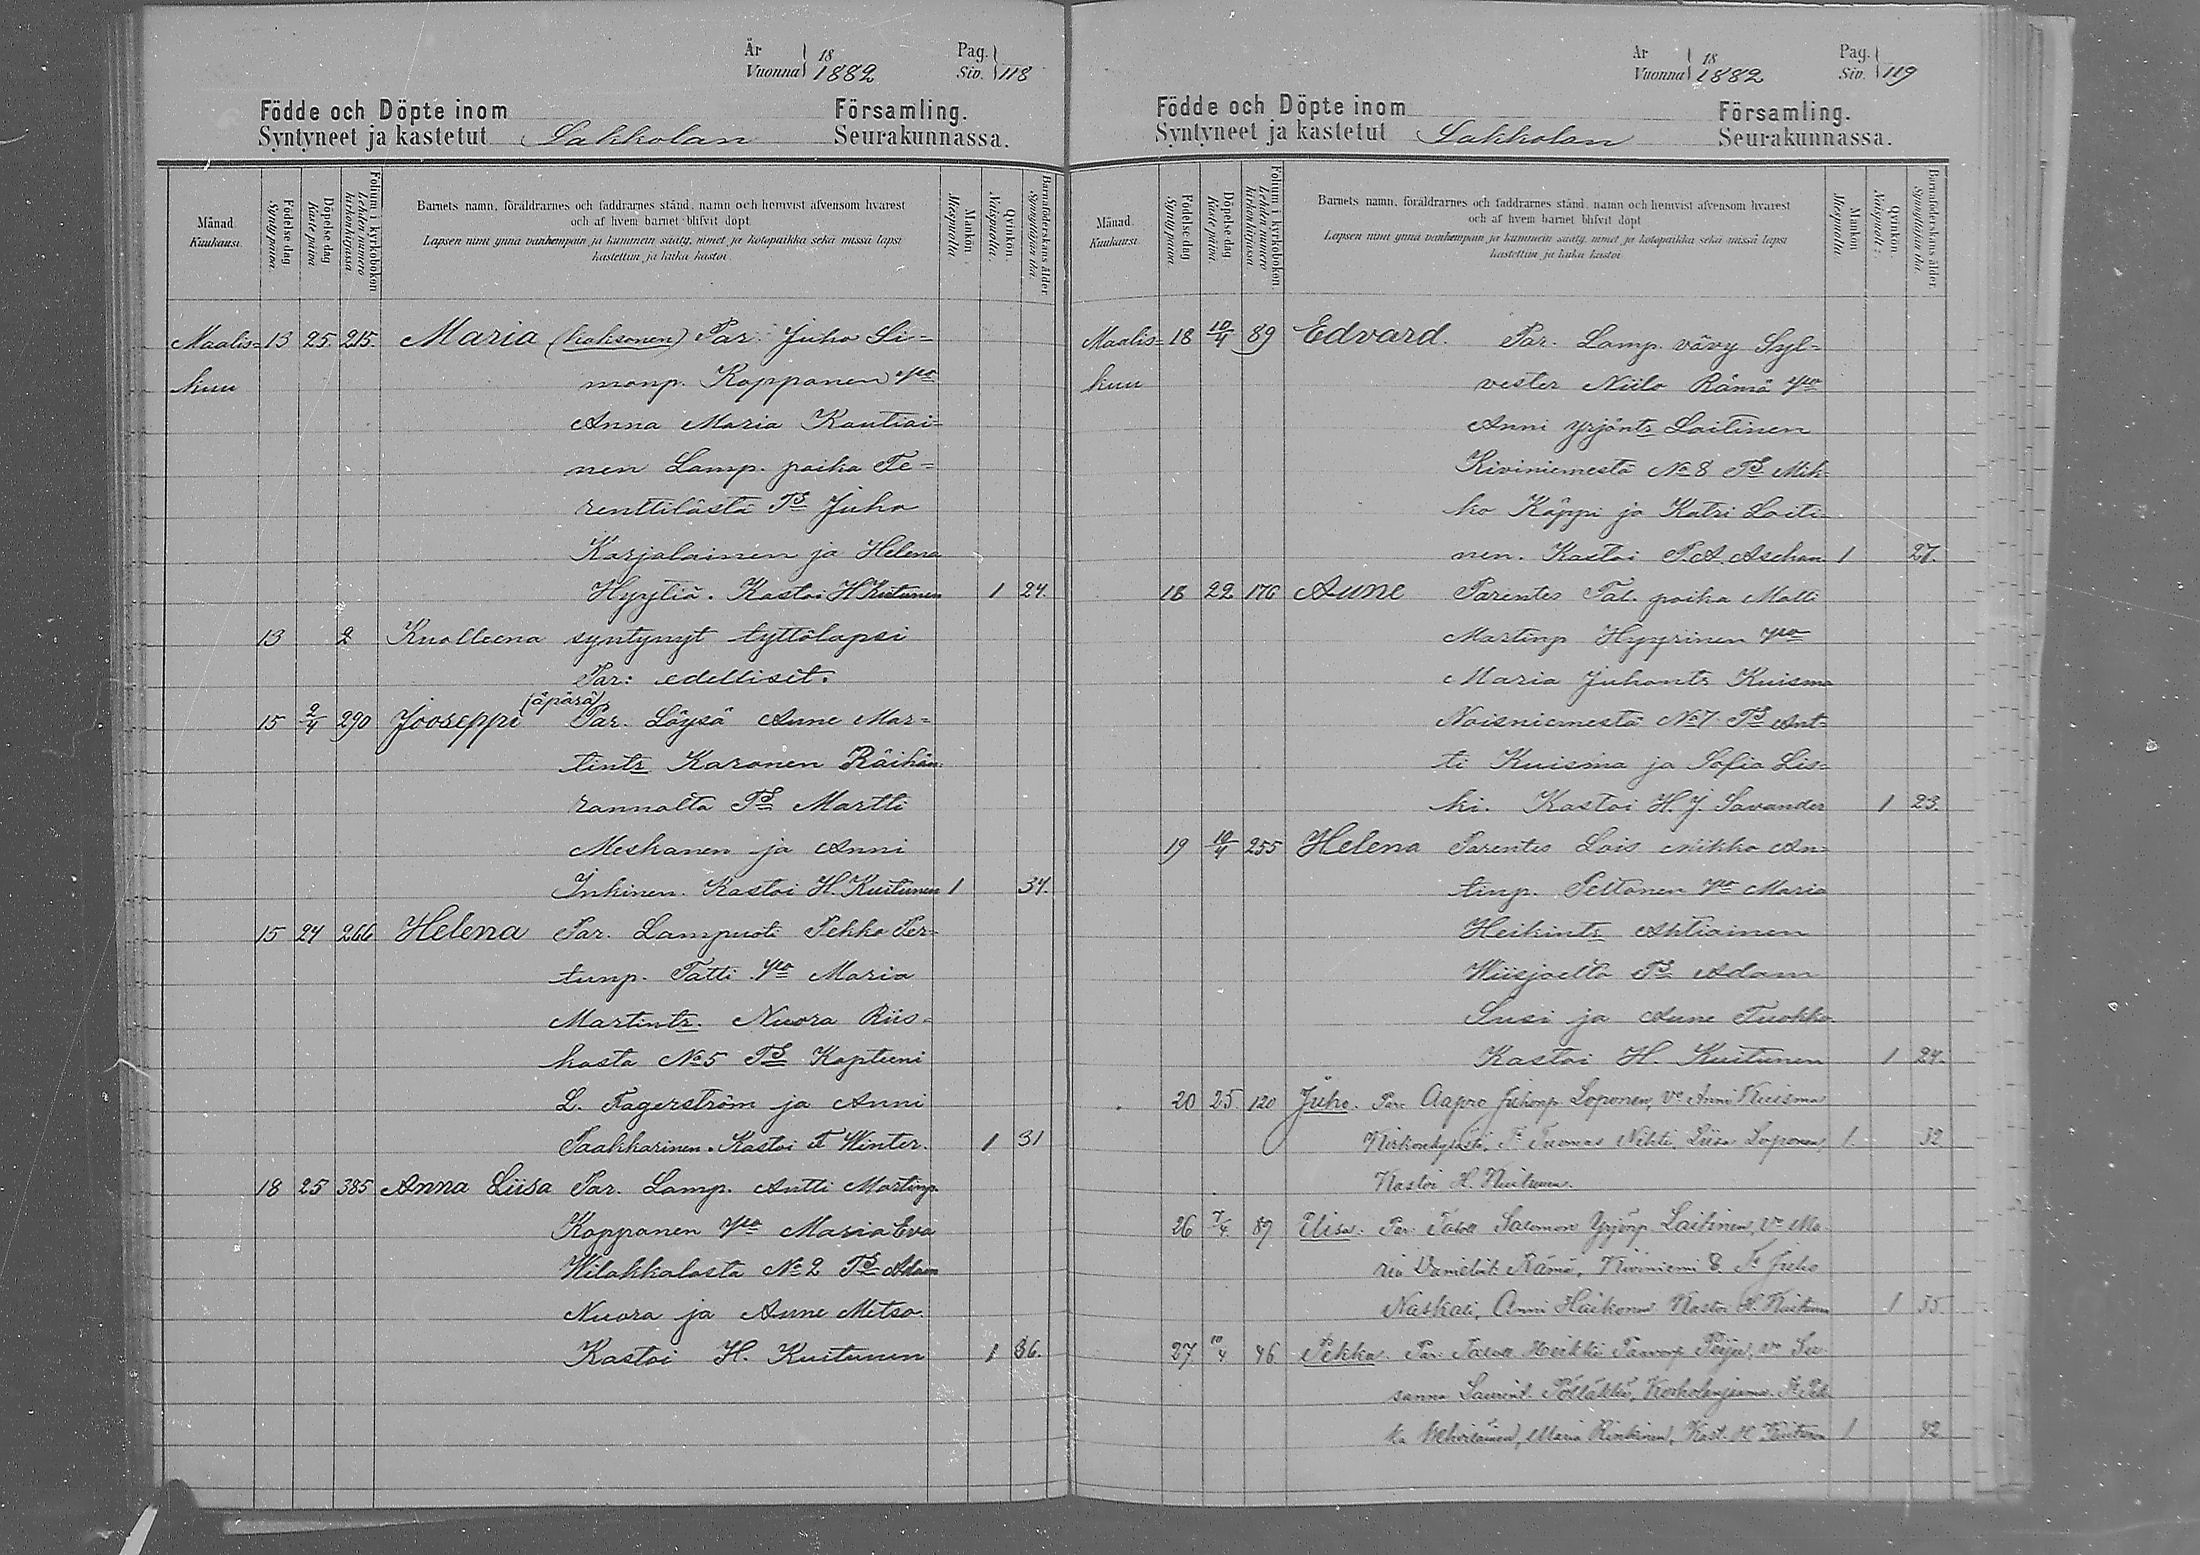 År 18
Vuonna 1882
Pag.
Siv. 118
Födde och Döpte inom Församling.
Syntyneet ja kastetut Sakkolan Seurakunnassa.
Månad.
Kuukausi.
Födelsedag
Syntypäivä.
Döpelsedag
Kastepäivä
Folium i kyrkoboken
Lehden numero kirkonkirjassa.
Barnets namn, föräldrarnes och faddrarnes stånd, namn och hemvist äfvensom hvarest
och af hvem barnet blifvit döpt
Lapsen nimi ynnä vanhempain ja kummein sääty, nimet ja kotopaikka sekä missä lapsi
kastettiin ja kuka kastoi.
Mankön.
Miespuolia
Qvinkön.
Naispuolia.
Barnaföderskans ålder
Synnyttäjän ikä.
Maalis= 13 25. 215. Maria (kaksonen) Par. Juho Si=
kuu monp. Kopponen vmo
Anna Maria Kautiai=
nen Lamp. poika Te=
renttilästä Ts Juho
Karjalainen ja Helena
Hyytiä. Kastoi H Kuitunen 1 24.
13 2 Kuolleena syntynyt tyttölapsi
Par: edelliset.
15 2/4 290 Jooseppi (äpärä) Par. Löysä Anne Mar=
tintr Karonen Räihän
rannalta Ts Martti
Meskanen ja Anni
Inkinen. Kastoi H. Kuitunen 1 34.
15 24 266 Helena Par. Lampuoti Pekka Per=
tunp. Tatti vmo Maria
Martintr. Nuora Riis=
kasta No 5 Ts Kapteeni
L. Fagerström ja Anni
Paakkarinen. Kastoi F Winter. 1 31
18 25 385 Anna Liisa Par. Lamp. Antti Martinp.
Kopponen vmo Maria Eva
Wilakkalasta No 2 Ts Adam
Nuora ja Anne Metso.
Kastoi H. Kuitunen 1 36.
År 18
Vuonna 1882
Pag.
Siv. 119
Födde och Döpte inom Församling.
Syntyneet ja kastetut Sakkolan Seurakunnassa.
Månad.
Kuukausi.
Födelsedag
Syntypäivä.
Döpelsedag
Kastepäivä.
Folium i kyrkoboken
Lehden numero kirkonkirjassa.
Barnets namn, föräldrarnes och faddrarnes stånd, namn och hemvist äfvensom hvarest
och af hvem barnet blifvit döpt
Lapsen nimi ynnä vanhempain ja kummein sääty, nimet ja kotopaikka sekä missä lapsi
kastettiin ja kuka kastoi
Mankön
Miespuolia.
Qvinkön.
Barnaföderskans ålder
Synnyttäjän ikä.
Maalis= 18 10/4 89 Edvard. Par. Lamp. vävy Syl=
kuu vester Niilo Rämä vmo
Anni Yrjöntr Laitinen
Kiviniemestä No 8 Ts Mik=
ko Käppi ja Katri Laiti=
nen. Kastoi P.A. Aschan 1 27.
18 22 176 Aune Parentes Tal. poika Matti
Martinp Hyyrinen vmo
Maria Juhontr Kuisma
Noisniemestä No 7 Ts Ant=
ti Kuisma ja Sofia Lis=
ki. Kastoi H. J. Savander 1 23.
19 10/4 255 Helena Parentes Lois Mikko An=
tinp. Peltonen vmo Maria
Heikintr Ahtiainen
Wiisjoelta Ts Adam
Susi ja Aune Tuokko
Kastoi H. Kuitunen 1 24.
20 25. 120 Juho. Par. Aapro Juhonp. Loponen, vo Anni Kuisma
Kirkonkylästä. Ts Tuomas Nihti, Liisa Loponen, 1. 32
Kastoi H. Kuitunen.
26 7/4. 89 Elisa. Par. Salomon Yrjönp. Laitinen, vo Ma
ria Rämä, Kiviniemi 8 Ts Juho
Naskali, Anni Haikonen Kastoi H. Kuitunen 1
27 10/4 46 Pekka. Par. Heikki vo Su
sanna Laurint. Pöllänen, 
Maria Rinkinen, Kast. H Kuitunen 1 42